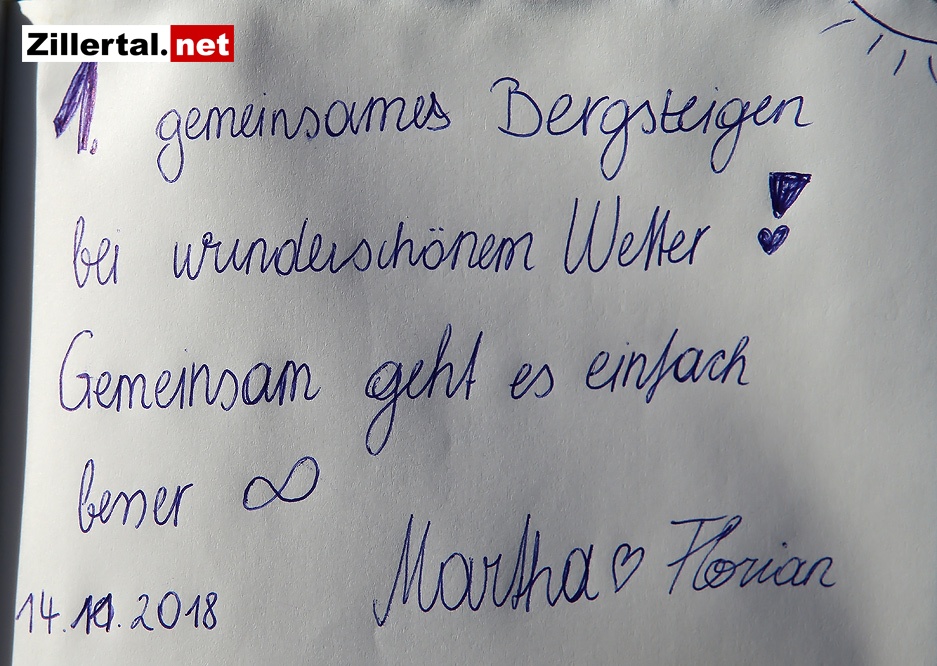 Zillertal.net
1. gemeinsames Bergsteigen
bei wunderschönem Wetter !
Gemeinsam geht es einfach
besser ∞
Martha ♡ Florian
14.10.2018